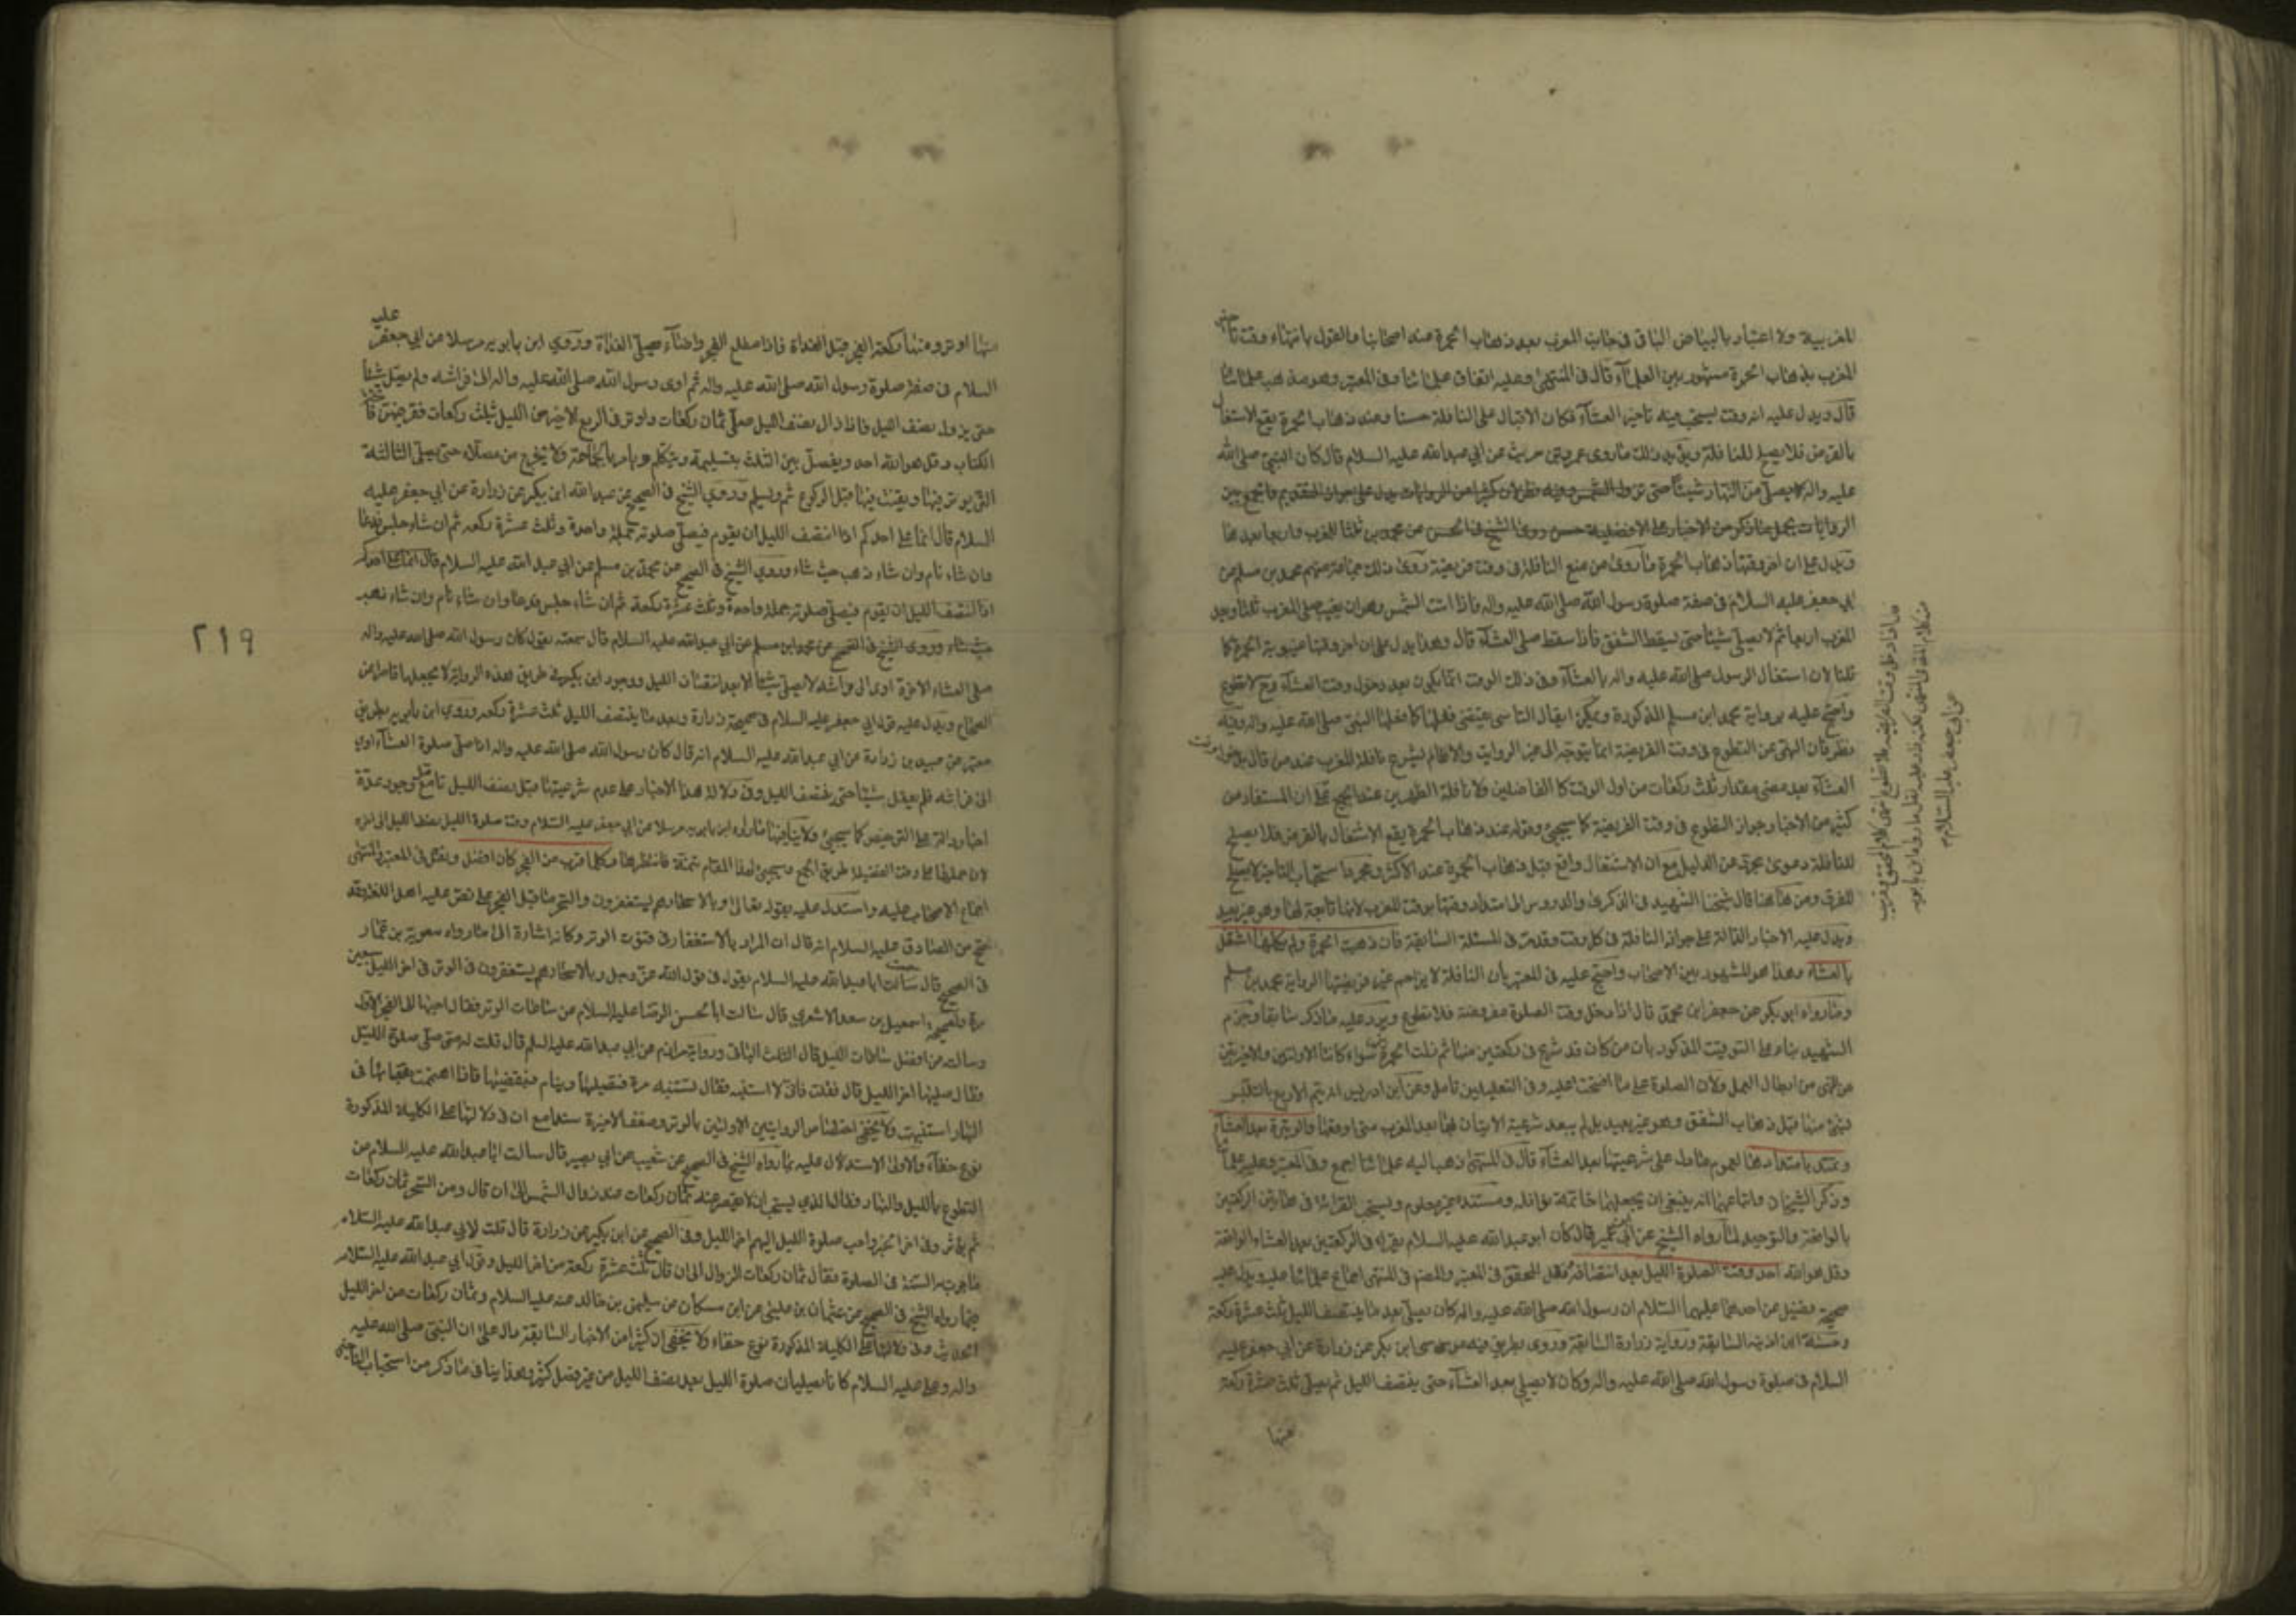 المغربية ولا اعتبار بالبياض الباقى فى جانب المغرب بعد ذهاب الحمرة عند اصحابنا والقول بانتهاء وقت نافلة
المغرب بذهاب الحمرة مشهور بين العلماء قال فى المنتهى وعليه اتفاق علمائنا وفى المعتبر وهو مذهب علمائنا
قال ويدل عليه انه وقت يستحب فيه تاخير العشاء فكان الاقبال على النافلة حسنا وعند ذهاب الحمرة يقع الاشتغال
بالفرض فلا يصلح للنافلة ذلك ماروى عن ابي عبدالله عليه السلام قال كان النبى صلى الله
عليه واله لا يصلى من النهار شيئا حتى تزول الشمس وفيه نظر لان كثيرا من الروايات يدل على جواز التقديم والجمع بين
الروايات بحمل ماذكر من الاخبار على الافضلية حسن روى الشيخ فى الحسن عن محمد بن ثلثا المغرب واربعا بعدها
ويدل على ان اخر وقتها ذهاب الحمرة ماروى من منع النافلة فى وقت فريضة روى ذلك جماعة منهم محمد بن مسلم عن
ابي جعفر عليه السلام فى صفة صلوة رسول الله صلى الله عليه واله فاذا ابت الشمس وهو ان يغيب صلى المغرب ثلثا وبعد
المغرب اربعا ثم لا يصلى شيئا حتى يسقط الشفق فاذا سقط صلى العشاء قال وهذا يدل على ان اخر وقتها غيبوبة الحمرة كما
قلنا لان اشتغال الرسول صلى الله عليه واله بالعشاء وفى ذلك الوقت انما يكون بعد دخول وقت العشاء وح لا تطوع
واحتج عليه برواية محمد ابن مسلم المذكورة ويمكن ان يقال التاسى يقتضى فعلها كما فعلها النبى صلى الله عليه واله وفيه
نظر فان النهى عن التطوع فى وقت الفريضة انما يتوجه الى غير الرواتب والا لم يشرع نافلة المغرب عند من قال بدخول وقت
العشاء بعد مضى مقدار ثلث ركعات من اول الوقت كالفاضلين ولا نافلة الظهرين عند الجميع على ان المستفاد من
كثير من الاخبار جواز التطوع فى وقت الفريضة كما سيجيئ وقوله عند ذهاب الحمرة يقع الاشتغال بالفرض فلا يصلح
للنافلة دعوى مجردة عن الدليل مع ان الاشتغال واقع قبل ذهاب الحمرة عند الاكثر ومجرد استحباب التاخير لا يصلح
للفرق ومن ههنا قال شيخنا الشهيد فى الذكرى والدروس الى امتداد وقتها بوقت المغرب لانها تابعة لها وهو غير بعيد
ويدل عليه الاخبار الدالة على جواز النافلة فى كل وقت وقدمت فى المسئلة السابقة فان ذهبت الحمرة ولم يكملها اشتغل
بالعشاء وهذا هو المشهور بين الاصحاب واحتج عليه فى المعتبر بان النافلة لا يزاحم غير فريضتها الرواية محمد بن مسلم
وما رواه ابو بكر عن جعفر ابن محمد قال اذا دخل وقت الصلوة مفروضة فلا تطوع ويرد عليه ماذكر سابقا وجزم
الشهيد بناء على التوقيت المذكور بان من كان قد شرع فى ركعتين منها ثم زالت الحمرة سواء كانتا الاوليين والاخيرتين
من النهى عن ابطال العمل ولان الصلوة على ما افتتحت عليه وفى التعليلين تامل وعن ابن ادريس انه يتم الاربع بالتلبس
بشئ منها قبل ذهاب الشفق وهو غير بعيد بل لم يبعد شرعية الاتيان بها بعد المغرب متى اوقعها والوتيرة بعد العشاء
وتمتد بامتدادها لعموم مادل على شرعيتها بعد العشاء قال فى المنتهى ذهب اليه علمائنا اجمع وفى المعتبر وعليه علمائنا
وذكر الشيخان واتباعهما انه ينبغى ان يجعلهما خاتمة نوافله ومستنده غير معلوم ويستحب القراءة فى هاتين الركعتين
بالواقعة والتوحيد لما رواه الشيخ عن ابى عمير قال كان ابو عبد الله عليه السلام يقرء فى الركعتين بعد العشاء الواقعة
وقل هو الله احد ووقت الصلوة الليل بعد انتصافه نقل المحقق فى المعتبر والمصنف فى المنتهى اجماع علمائنا عليه ويدل عليه
صحيحة فضيل عن احدهما عليهما السلام ان رسول الله صلى الله عليه واله كان يصلى بعد ما ينتصف الليل ثلث عشرة ركعة
وحسنة ابن اذينه السابقة ورواية زرارة السابقة وروى بطريق فيه موسى ابن بكر عن زرارة عن ابي جعفر عليه
السلام فى صلوة رسول الله صلى الله عليه واله وكان لا يصلى بعد العشاء حتى ينتصف الليل ثم يصلى ثلث عشرة ركعة
منها
من كلام المحقق فى المنتهى
عن ابى جعفر عليه السلام
منها الوتر ومنها ركعتا الفجر قبل الغداة فاذا طلع الفجر واضاء صلى الغداة وروى ابن بابويه مرسلا عن ابي جعفر عليه
السلام فى صفة صلوة رسول الله صلى الله عليه واله ثم اوى رسول الله صلى الله عليه واله الى فراشه ولم يصل شيئا
حتى يزول نصف الليل فاذا زال نصف الليل صلى ثمان ركعات واوتر فى الربع الاخير من الليل ثلث ركعات فقرء فيهن فاتحة
الكتاب وقل هو الله احد ويفصل بين الثلث بتسليمة ويتكلم ويامر بالحاجة ولا يخرج من مصلاه حتى يصلى الثالثة
التى يوتر فيها ويقنت فيها قبل الركوع ثم يسلم وروى الشيخ فى الصحيح عن عبد الله ابن بكير عن زرارة عن ابي جعفر عليه
السلام قال انما على احدكم اذا انتصف الليل ان يقوم فيصلى صلوته جملة واحدة وثلث عشرة ركعة ثم ان شاء جلس فدعا
وان شاء نام وان شاء ذهب حيث شاء وروى الشيخ فى الصحيح عن محمد بن مسلم عن ابي عبد الله عليه السلام قال انما على احدكم
اذا انتصف الليل ان يقوم فيصلى صلوته جملة واحدة وثلث عشرة ركعة ثم ان شاء جلس فدعا وان شاء نام وان شاء ذهب
حيث شاء وروى الشيخ فى الصحيح عن محمد ابن مسلم عن ابي عبد الله عليه السلام قال سمعته يقول كان رسول الله صلى الله عليه واله
صلى العشاء الاخرة اوى الى فراشه لا يصلى شيئا الا بعد انتصاف الليل ووجود ابن بكير فى طريق هذه الرواية لا يجعلها قاصرا عن
الصحاح ويدل عليه قول ابي جعفر عليه السلام فى صحيحة زرارة وبعد ما ينتصف الليل ثلث عشرة ركعة وروى ابن بابويه بطريق
معتبر عن عبيد بن زرارة عن ابي عبد الله عليه السلام انه قال كان رسول الله صلى الله عليه واله اذا صلى صلوة العشاء اوى
الى فراشه فلم يصل شيئا حتى ينتصف الليل وفى دلالة هذا الاخبار على عدم شرعيتها قبل نصف الليل تامل مع وجود عدة
اخبار دالة على الترخيص كما سيجيئ ولا ينافيها مارواه ابن بابويه مرسلا عن ابي جعفر عليه السلام وقت صلوة الليل نصف الليل الى اخره
لان حملها على وقت الفضيلة طريق الجمع وسيجيئ لهذا المقام تتمة فانتظرها وكلما قرب من الفجر كان افضل ونقل فى المعتبر والمنتهى
اجماع الاصحاب عليه واستدل عليه بقوله تعالى وبالاسحار هم يستغفرون والسحر ما قبل الفجر على نص عليه اهل اللغة وقد
صح عن الصادق عليه السلام انه قال ان المراد بالاستغفار فى قنوت الوتر وكانه اشارة الى مارواه معوية بن عمار
فى الصحيح قال سمعت ابا عبد الله عليه السلام يقول فى قول الله عز وجل وبالاسحار هم يستغفرون فى الوتر فى اخر الليل سبعين
مرة وصحيحة اسمعيل بن سعد الاشعرى قال سالت ابا الحسن الرضا عليه السلام عن ساعات الوتر فقال احبها الى الفجر الاول
وسالته عن افضل ساعات الليل قال الثلث الباقى ورواية مرازم عن ابي عبد الله عليه السلم قال قلت له متى صلى صلوة الليل
فقال صليها اخر الليل قال فقلت فانى لا استنبه فقال تستنبه مرة فتصليها وينام فتقضيها فاذا اهتممت بقضائها فى
النهار استنبهت ولا يخفى اختصاص الروايتين الاوليين بالوتر وضعف الاخيرة سندا مع ان فى دلالتها على الكلية المذكورة
نوع خفاء والاولى الاستدلال عليه بما رواه الشيخ فى الصحيح عن شعيب عن ابي بصير قال سالت ابا عبد الله عليه السلام عن
التطوع بالليل والنهار فقال الذي يستحب ان لا يقصر عنه ثمان ركعات عند زوال الشمس الى ان قال ومن السحر ثمان ركعات
ثم يوتر وفى اخر الخبر واحب صلوة الليل اليهم اخر الليل وفى الصحيح عن ابن بكير عن زرارة قال قلت لابي عبد الله عليه السلام
ما جرت به السنة فى الصلوة فقال ثمان ركعات الزوال الى ان قال ثلث عشرة ركعة من اخر الليل وقول ابي عبد الله عليه السلام
فيما رواه الشيخ فى الصحيح عن عثمان بن عيسى عن ابن مسكان عن سليمن بن خالد عنه عليه السلام وثمان ركعات من اخر الليل
الحديث وفى دلالتها على الكلية المذكورة نوع خفاء ولا يخفى ان كثيرا من الاخبار السابقة دال على ان النبى صلى الله عليه
واله وعلى عليه السلام كانا يصليان صلوة الليل بعد نصف الليل من غير فصل كثير وهذا ينافى ماذكر من استحباب التاخير
٢١٩